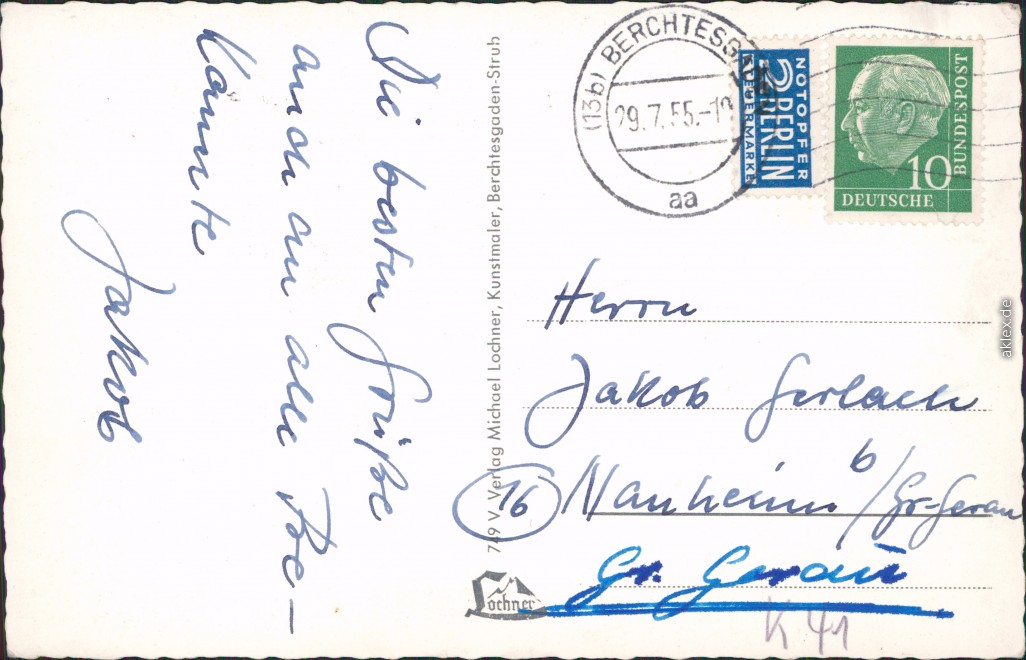 Die besten Grüße
auch an alle Be-
kannte
Jakob
749 V Verlag Michael Lochner, Kunstmaler, Berchtesgaden-Strub
(13b) BERCHTESGADEN
29.7.55.-1
aa
NOTOPFER
2 BERLIN
STEUERMARKE
DEUTSCHE
BUNDESPOST
10
Herrn
Jakob Gerlach
(16) Nauheim b/Gr-Gerau
Gr. Gerau
Lochner
K 41
aklex.de